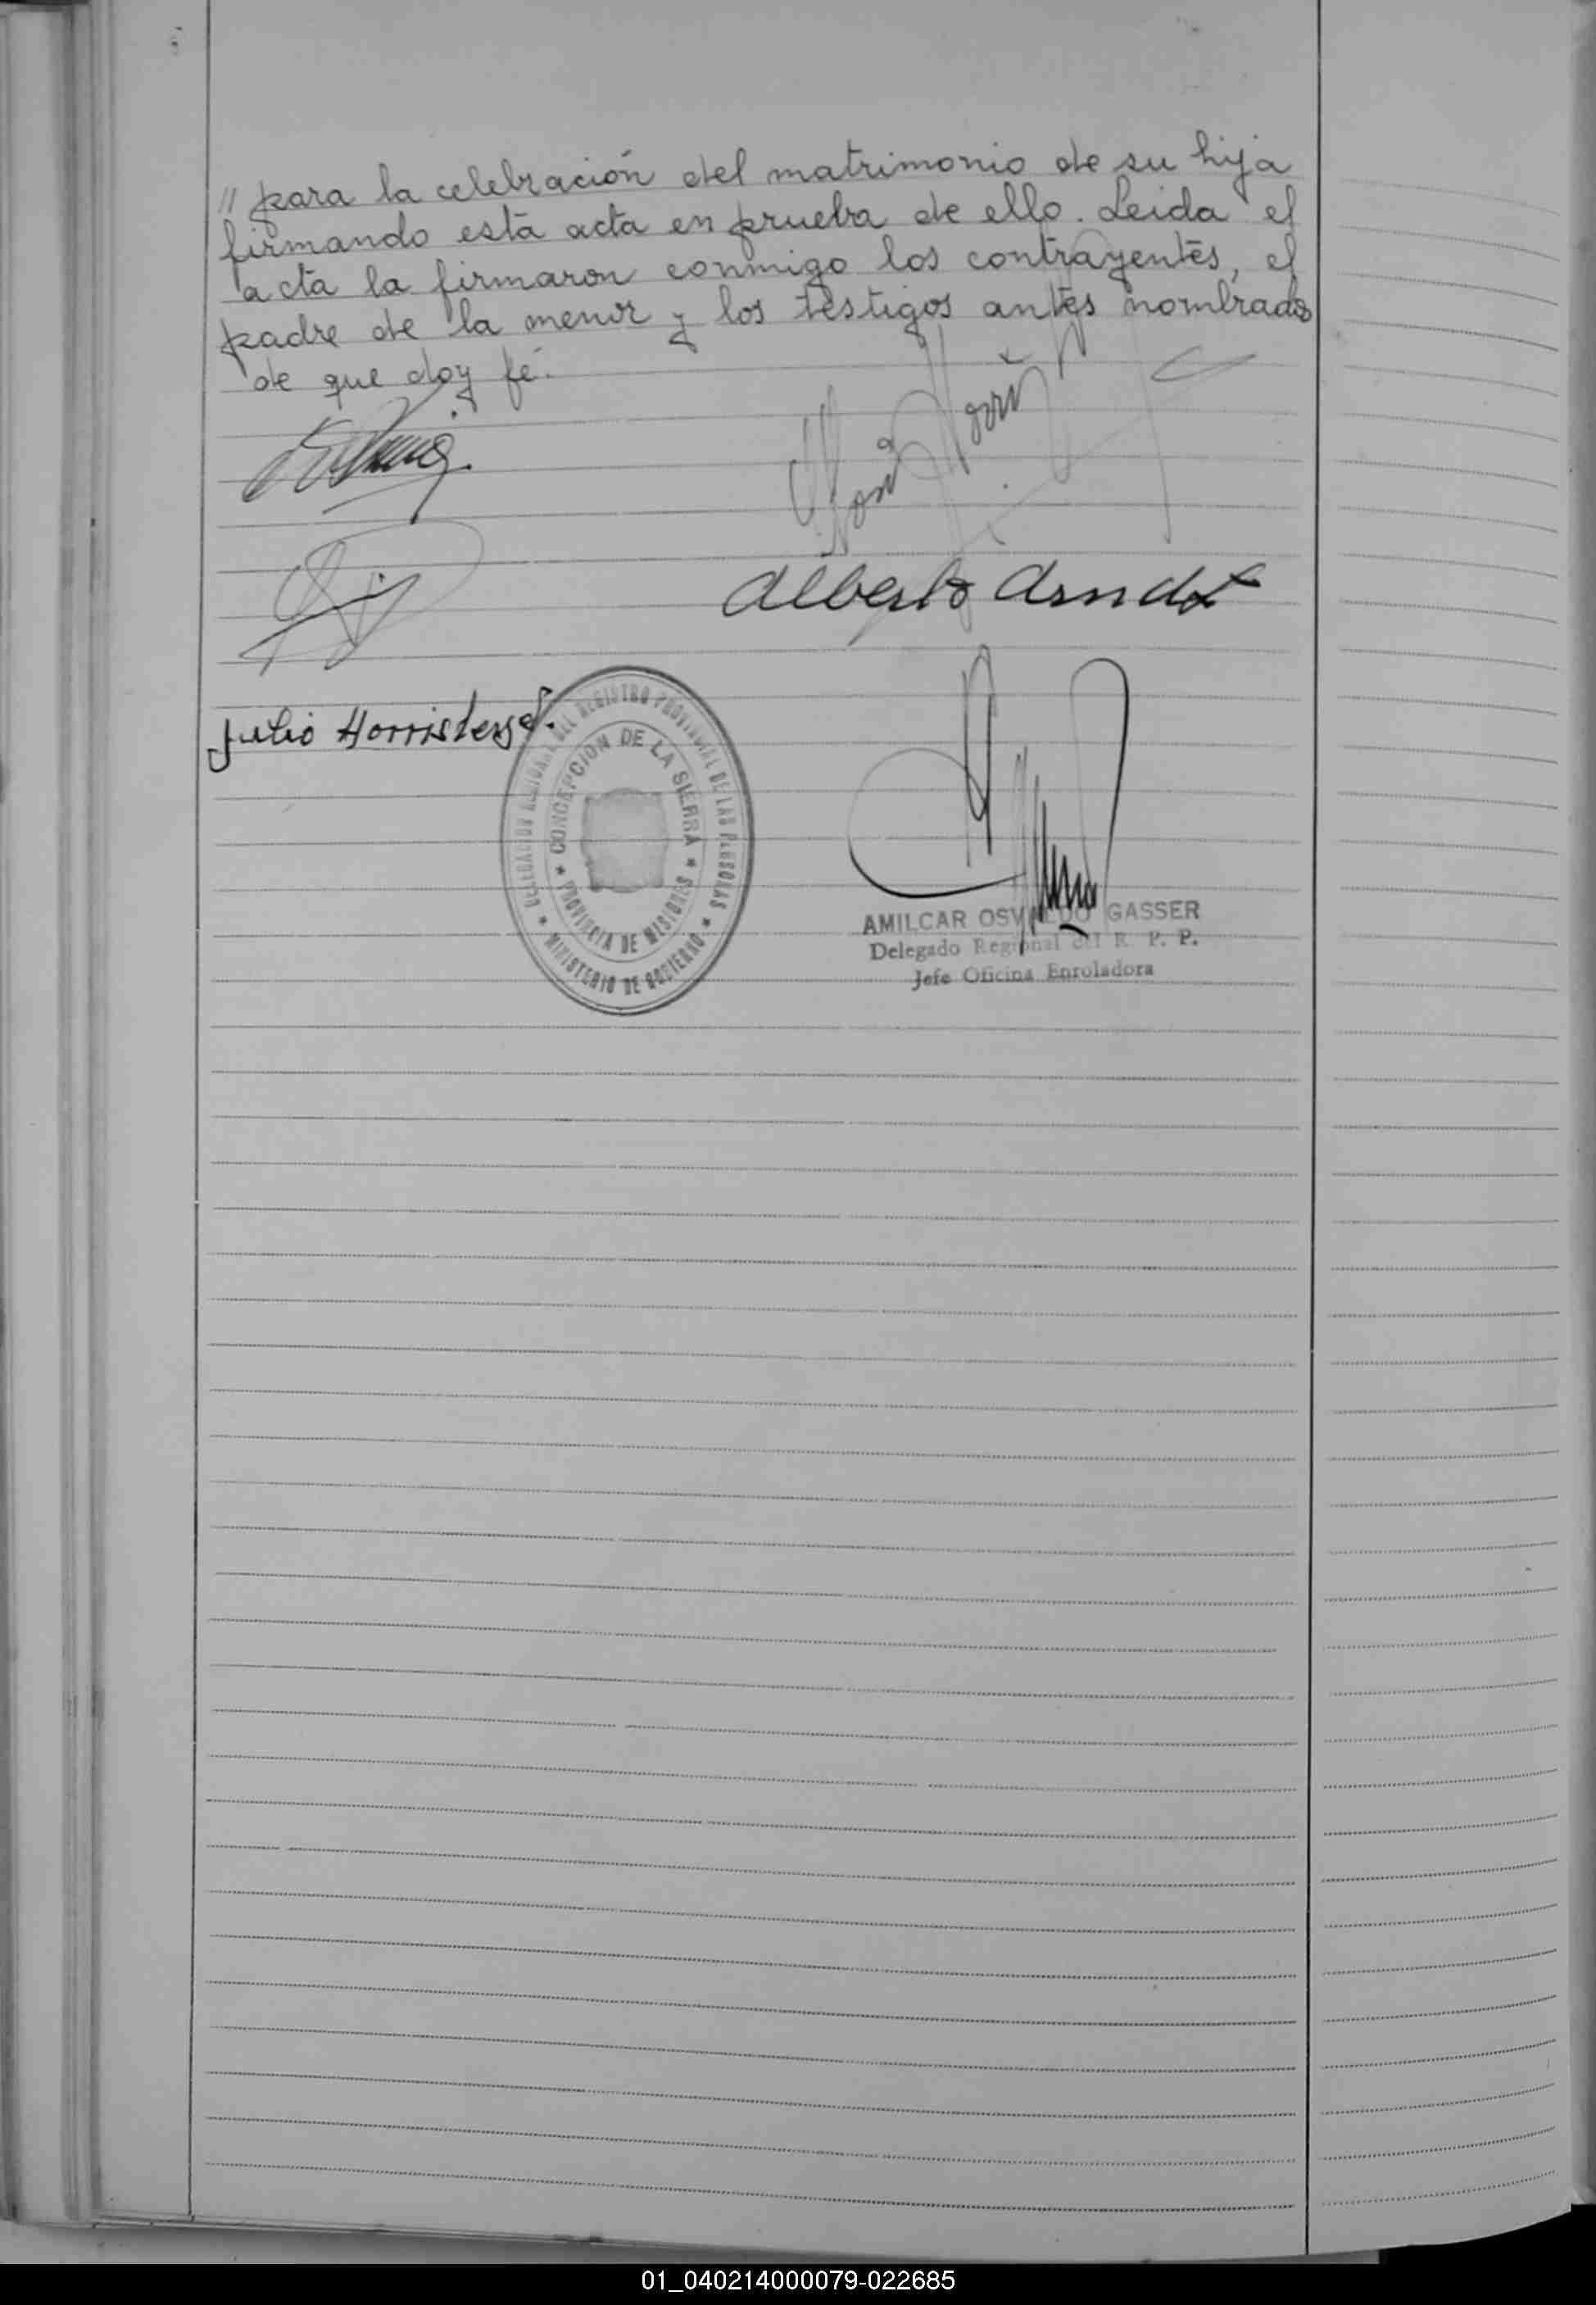 // para la celebración del matrimonio de su hija
firmando está acta en prueba de ello. Leida el
acta la firmaron conmigo los contrayentes, el
padre de la menor y los testigos antes nombrados
de que doy fé.
Alberto Arndt
Julio
DELEGACION REGIONAL DEL REGISTRO PROVINCIAL DE LAS PERSONAS
CONCEPCION DE LA SIERRA
PROVINCIA DE MISIONES
MINISTERIO DE GOBIERNO
AMILCAR OSVALDO GASSER
Delegado Regional del R. P. P.
Jefe Oficina Enroladora
01_040214000079-022685